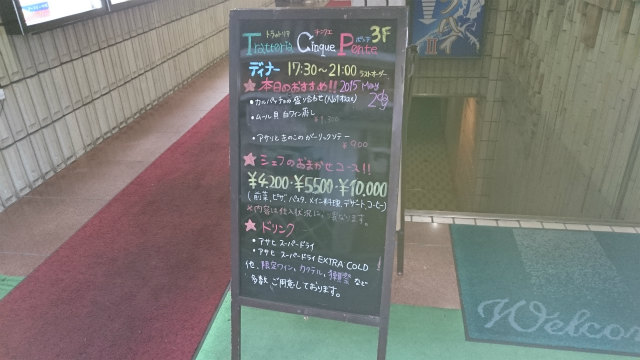 トラットリア チンクエ ポンテ
Trattoria Cinque Ponte 3F
ディナー 17:30～21:00 ラストオーダー
★本日のおすすめ!! 2015 May
・カルパッチョの盛り合わせ
・ムール貝 白ワイン蒸し
¥1,300
・アサリときのこのガーリックソテー
¥900
★シェフのおまかせコース!!
¥4,200・¥5500・¥10,000
(前菜、ピザ、パスタ、メイン料理、デザート、コーヒー)
※内容は仕入状況により異なります。
★ドリンク
・アサヒ スーパードライ
・アサヒ スーパードライ EXTRA COLD!
他、限定ワイン、カクテル、など
多数 ご用意しております。
Welcom